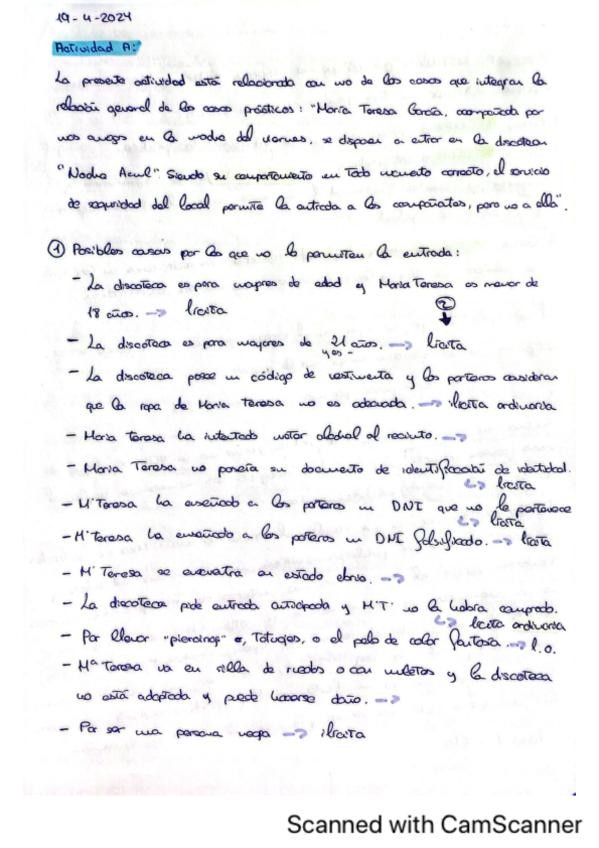 19-4-2024
Actividad A:
La presente actividad está relacionada con uno de los casos que integran la
relación general de los casos prácticos: "María Teresa García, acompañada por
unos amigos en la noche del viernes, se disponen a entrar en la discoteca
"Noche Azul". Siendo su comportamiento en todo momento correcto, el servicio
de seguridad del local permite la entrada a los acompañantes, pero no a ella".
① Posibles causas por las que no le permiten la entrada:
- La discoteca es para mayores de edad y María Teresa es menor de
18 años. → lícita
②
- La discoteca es para mayores de 21 años. → lícita
- La discoteca posee un código de vestimenta y los porteros consideran
que la ropa de María Teresa no es adecuada. → ilícita ordinaria
- María Teresa ha intentado meter alcohol al recinto. →
- María Teresa no poseía su documento de identificación de identidad.
↳ lícita
- Mª Teresa ha enseñado a los porteros un DNI que no le pertenece
↳ lícita
- Mª Teresa ha enseñado a los porteros un DNI falsificado. → lícita
- Mª Teresa se encuentra en estado ebrio. →
- La discoteca pide entrada anticipada y M.T. no la habría comprado.
↳ lícita ordinaria
- Por llevar "piercings" o, Tatuajes, o el pelo de color fantasía. → l.o.
- Mª Teresa va en silla de ruedas o con muletas y la discoteca
no está adaptada y puede hacerse daño. →
- Por ser una persona negra → ilícita
Scanned with CamScanner